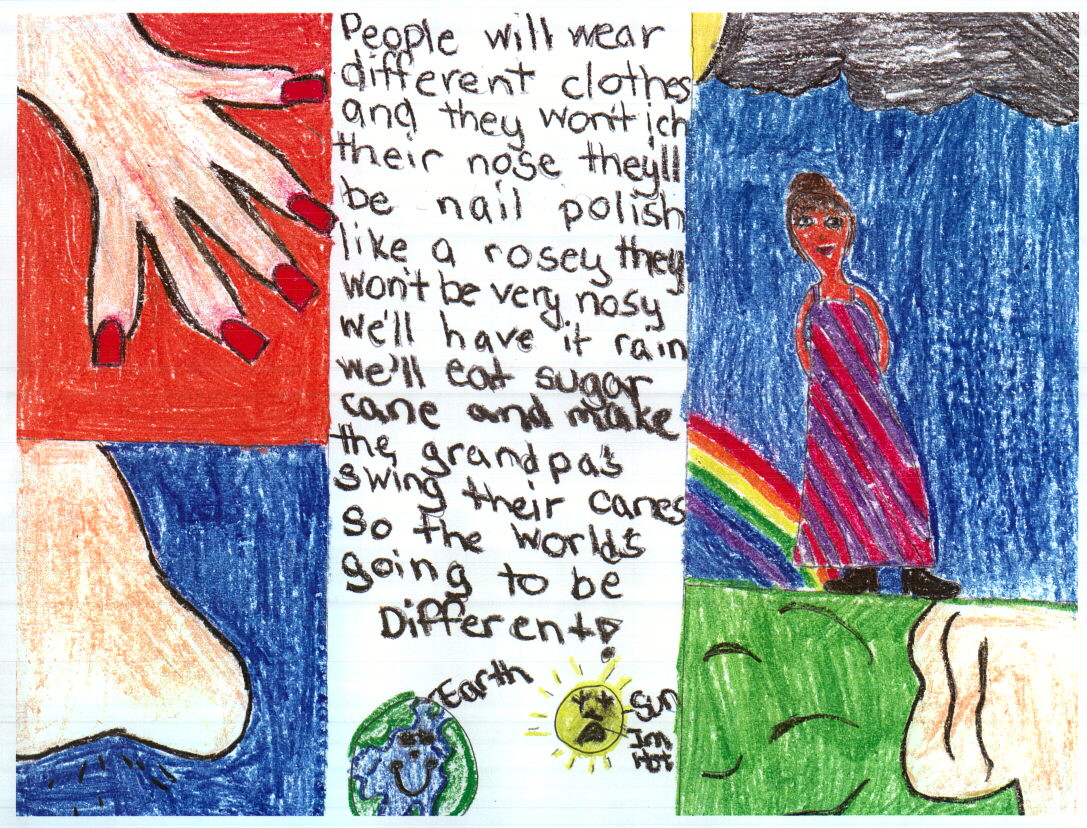 People will wear
different clothes
and they won't ich
their nose they'll
be nail polish
like a rosey they
won't be very nosy
we'll have it rain
we'll eat sugar
cane and make
the grandpa's
swing their canes
so the world's
going to be
Different!
Earth
Sun
I'm
hot